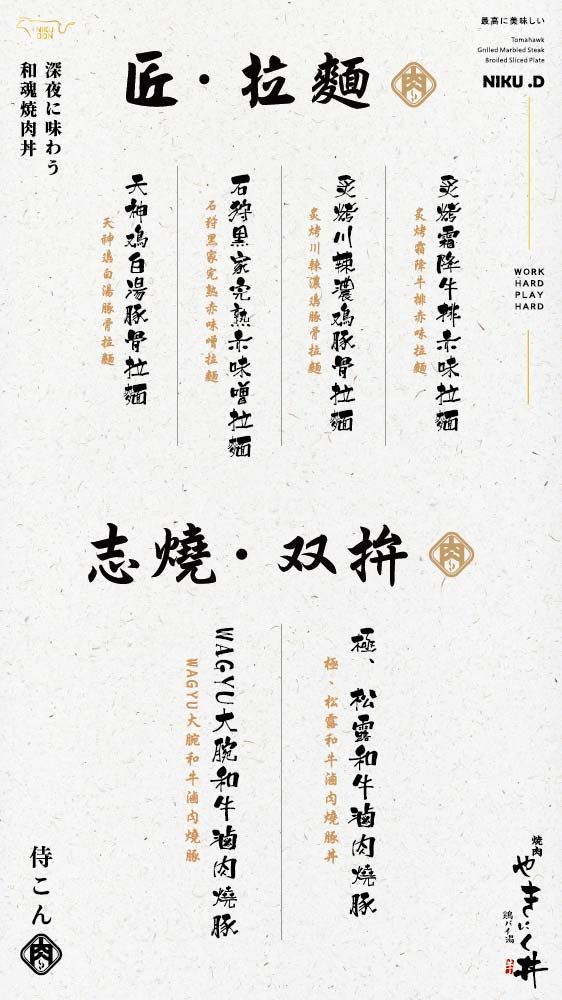 NIKU
DON
最高に美味しい
Tomahawk
Grilled Marbled Steak
Broiled Sliced Plate
NIKU .D
深夜に味わう
和魂焼肉丼
匠・拉麵
肉
炙烤霜降牛排赤味拉麵
炙烤霜降牛排赤味拉麵
炙烤川辣濃鷄豚骨拉麵
炙烤川辣濃鷄豚骨拉麵
石狩黑家完熟赤味噌拉麵
石狩黑家完熟赤味噌拉麵
天神鷄白湯豚骨拉麵
天神鷄白湯豚骨拉麵
WORK
HARD
PLAY
HARD
志燒・双拚
肉
極、松露和牛滷肉燒豚
極、松露和牛滷肉燒豚丼
WAGYU大腕和牛滷肉燒豚
WAGYU大腕和牛滷肉燒豚
侍こん
肉
焼肉
やきにく丼
鶏パイ湯